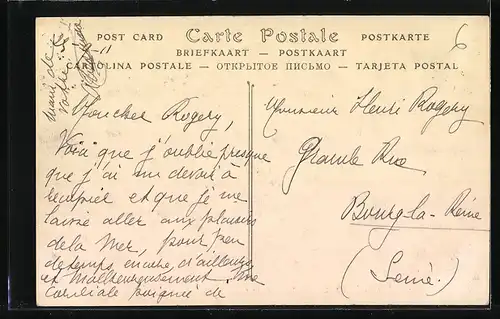 POST CARD Carte Postale POSTKARTE
BRIEFKAART — POSTKAART
CARTOLINA POSTALE — ОТКРЫТОЕ ПИСЬМО — TARJETA POSTAL
6
Mon cher Rogery,
Voici que j'oublie presque
que j'ai un devoir à
remplir et que je me
laisse aller aux plaisirs
de la Mer, pour peu
de temps encore, d'ailleurs,
et malheureusement. Une
cordiale poignée de
main de
votre
Monsieur Henri Rogery
Grande Rue
Bourg-la-Reine
(Seine.)